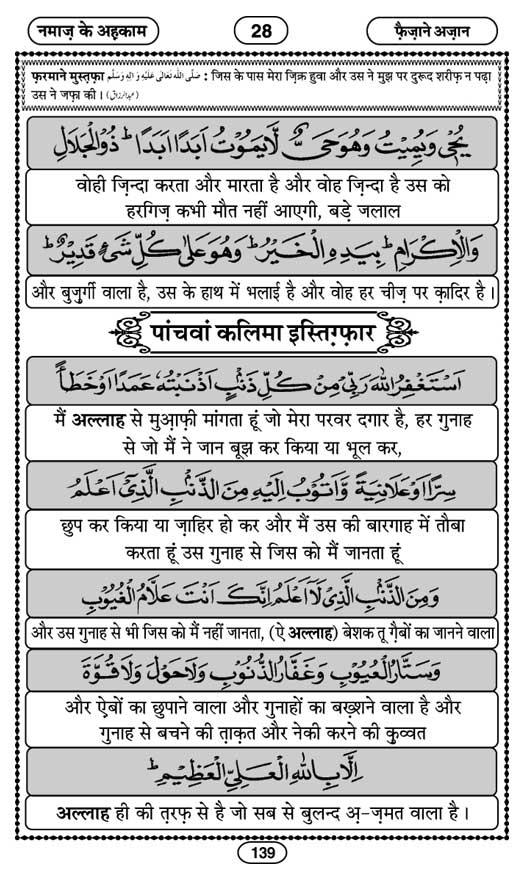 नमाज़ के अहकाम
28
फ़ैज़ाने अज़ान
फ़रमाने मुस्तफ़ा صَلَّى اللهُ تَعَالٰى عَلَيْهِ وَاٰلِهٖ وَسَلَّم : जिस के पास मेरा ज़िक्र हुवा और उस ने मुझ पर दुरूद शरीफ़ न पढ़ा
उस ने जफ़ा की। (عبدالرزاق)
يُحْيٖ وَيُمِيْتُ وَهُوَ حَىٌّ لَّا يَمُوْتُ اَبَدًا اَبَدًا ؕ ذُو الْجَلَالِ
वोही ज़िन्दा करता और मारता है और वोह ज़िन्दा है उस को
हरगिज़ कभी मौत नहीं आएगी, बड़े जलाल
وَالْاِكْرَامِ ؕ بِيَدِهِ الْخَيْرُ ؕ وَهُوَ عَلٰى كُلِّ شَىْءٍ قَدِيْرٌ ؕ
और बुज़ुर्गी वाला है, उस के हाथ में भलाई है और वोह हर चीज़ पर क़ादिर है।
पांचवां कलिमा इस्तिग़्फ़ार
اَسْتَغْفِرُ اللهَ رَبِّىْ مِنْ كُلِّ ذَنْۢبٍ اَذْنَبْتُهٗ عَمَدًا اَوْ خَطَأً
मैं अल्लाह से मुआ़फ़ी मांगता हूं जो मेरा परवर दगार है, हर गुनाह
से जो मैं ने जान बूझ कर किया या भूल कर,
سِرًّا اَوْ عَلَانِيَةً وَّاَتُوْبُ اِلَيْهِ مِنَ الذَّنْۢبِ الَّذِىْٓ اَعْلَمُ
छुप कर किया या ज़ाहिर हो कर और मैं उस की बारगाह में तौबा
करता हूं उस गुनाह से जिस को मैं जानता हूं
وَمِنَ الذَّنْۢبِ الَّذِىْ لَآ اَعْلَمُ اِنَّكَ اَنْتَ عَلَّامُ الْغُيُوْبِ
और उस गुनाह से भी जिस को मैं नहीं जानता, (ऐ अल्लाह) बेशक तू ग़ैबों का जानने वाला
وَسَتَّارُ الْعُيُوْبِ وَغَفَّارُ الذُّنُوْبِ وَلَا حَوْلَ وَلَا قُوَّةَ
और ऐ़बों का छुपाने वाला और गुनाहों का बख़्शने वाला है और
गुनाह से बचने की त़ाक़त और नेकी करने की क़ुव्वत
اِلَّا بِاللهِ الْعَلِىِّ الْعَظِيْمِ ؕ
अल्लाह ही की त़रफ़ से है जो सब से बुलन्द अ़-ज़मत वाला है।
139